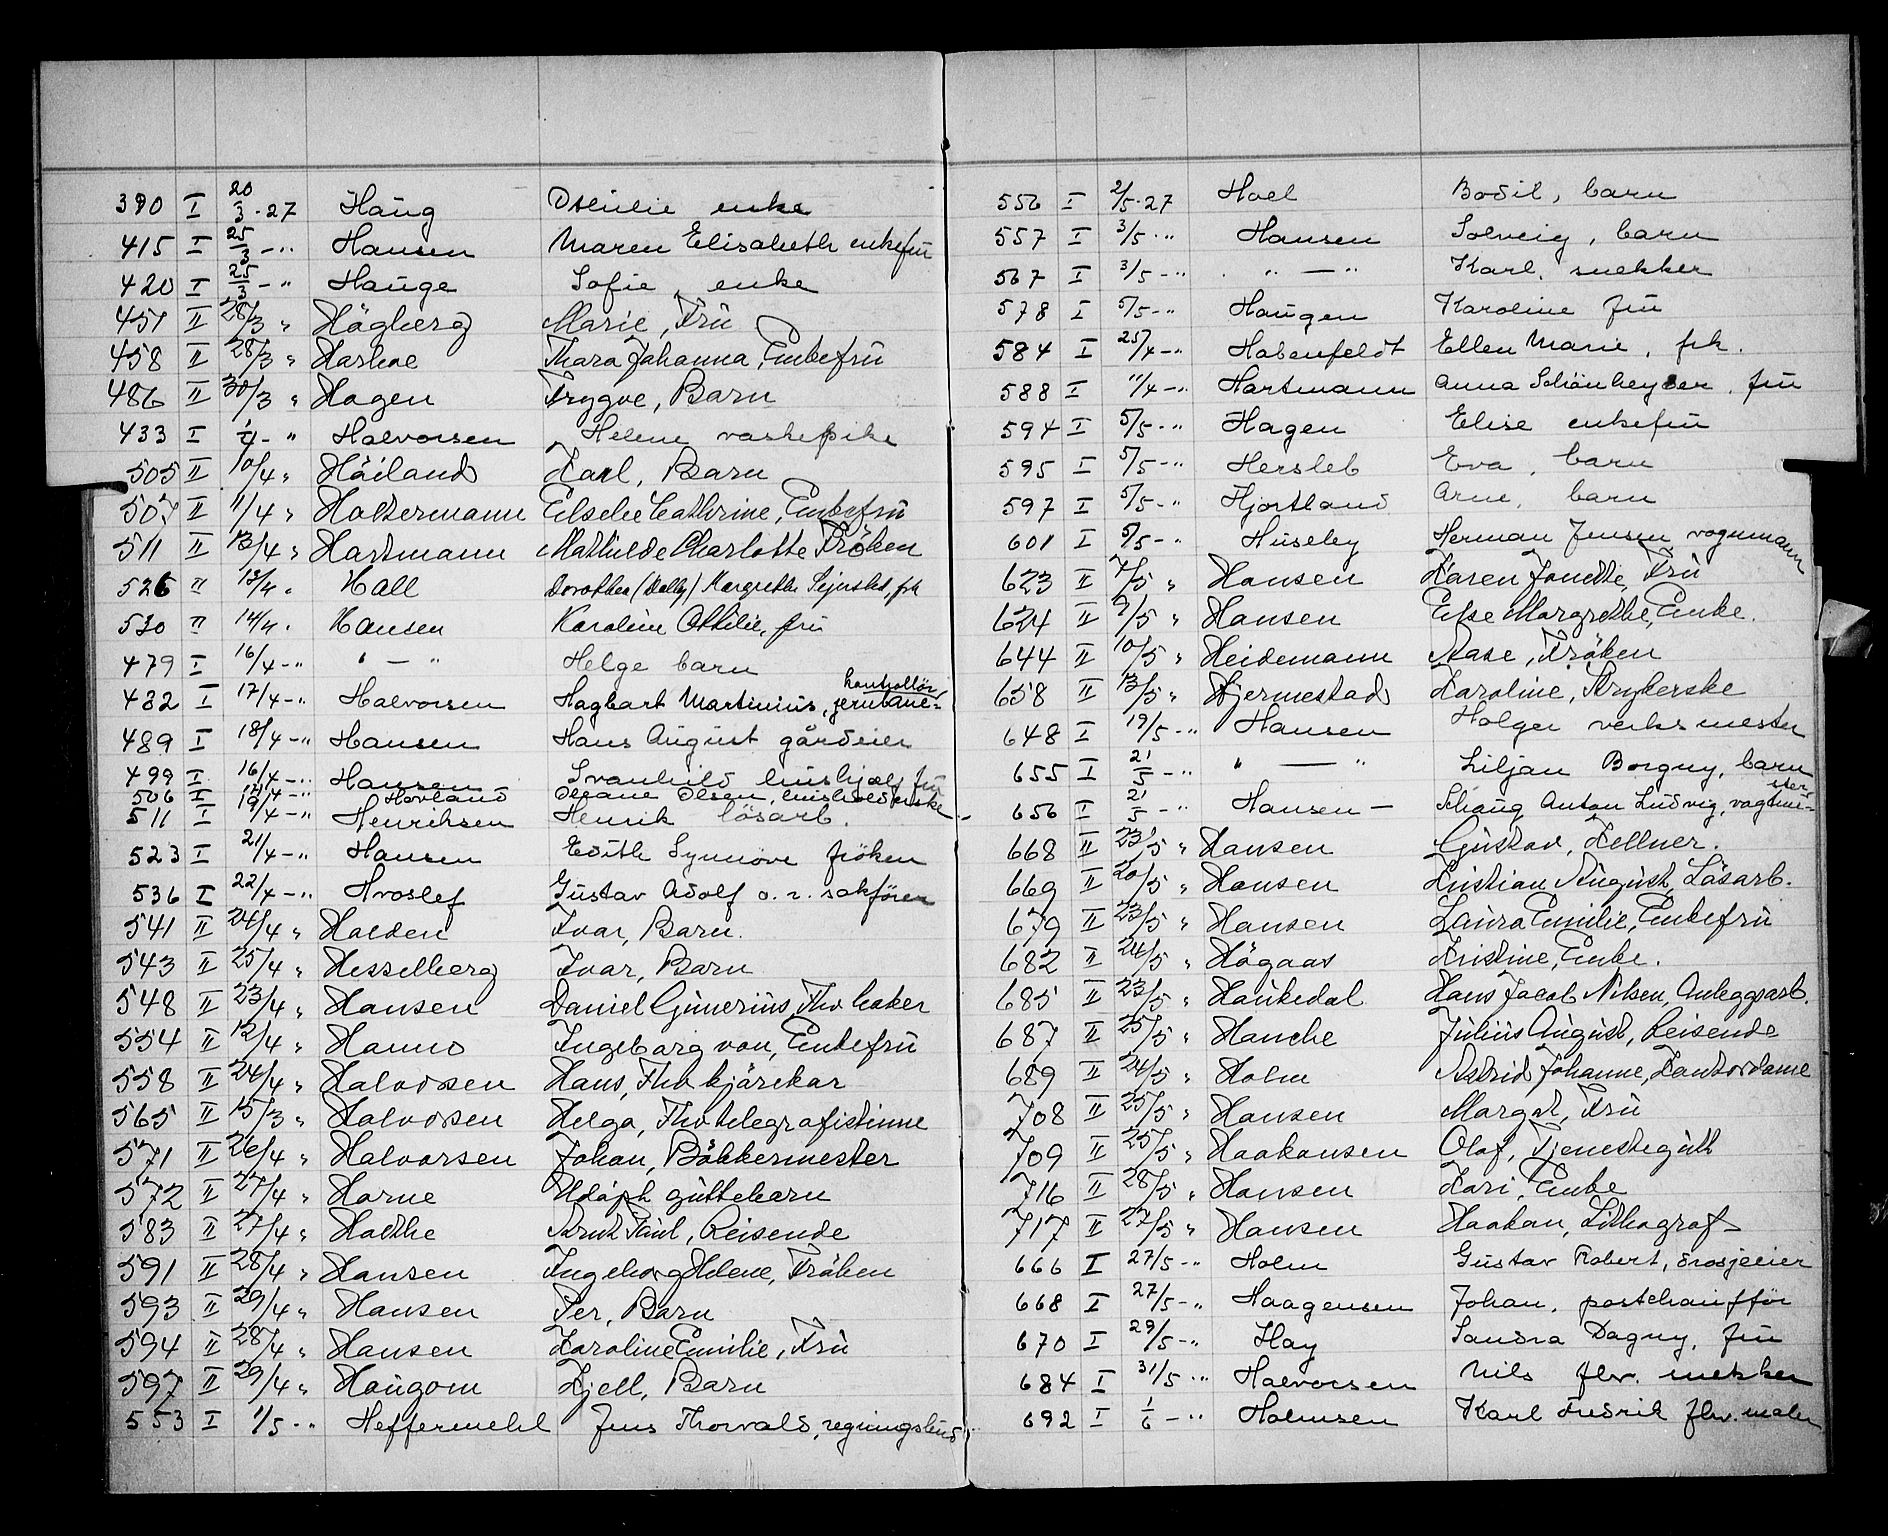 390 I 20/3 - 27 Haug Othilie enke
415 I 25/3 - " Hansen Maren Elisabeth enkefru
420 I 25/3 - " Hauge Sofie enke
451 II 28/3 " Högberg Marie, Fru
458 II 28/3 " Harhoe Thora Johanna, Enkefru
486 II 30/3 " Hagen Trygve, Barn
433 I 1/4 - " Halvorsen Helene vaskepike
505 II 10/4 " Höiland Karl, Barn
507 II 11/4 " Holtermann Elschec Cathrine, Enkefru
511 II 13/4 " Hartmann Mathilde Charlotte Fröken
526 " 13/4 " Hall Dorothea (Dolly) Margrethe Sejersted, frk
530 " 14/4 " Hansen Karoline Ottilie, fru
479 I 16/4 - " " - " Helge barn
482 I 17/4 - " Halvorsen Hagbart Martinius, jernbane- kontrollör
489 I 18/4 - " Hansen Hans August gårdeier
499 I 16/4 - " Hanssen Svanhild hushjelp fru
506 I 19/4 - " Hovland Oleane Olsen, husholderske
511 I 19/4 - " Henriksen Henrik lösarb.
523 I 21/4 - " Hansen Edith Synnöve fröken
536 I 22/4 - " Hroslef Gustav Adolf o. r. sakförer
541 II 24/4 " Halden Ivar, Barn.
543 II 25/4 " Hesselberg Ivar, Barn
548 II 23/4 " Hansen Daniel Gunerius, Fhv baker
554 II 12/4 " Hanno Ingeborg von, Enkefru
558 II 24/4 " Halvorsen Hans, Fhv kjörekar
565 II 15/3 " Halvorsen Helga, Fhv telegrafistinne
571 II 26/4 " Halvorsen Johan, Bökkermester
572 II 27/4 " Horne Udöpt guttebarn
583 II 27/4 " Holthe Arnt Paul, Reisende
591 II 28/4 " Hansen Ingeborg Helene, Fröken
593 II 29/4 " Hansen Per, Barn
594 II 28/4 " Hansen Karoline Emilie, Fru
597 II 29/4 " Haugom Kjell, Barn
553 I 1/5 - " Heffermehl Jens Thorvald, regningsbud
556 I 2/5 - 27 Hoel Bodil, barn
557 I 3/5 - " Hansen Solveig, barn
567 I 3/5 - " " - " Karl, snekker
578 I 5/5 - " Haugen Karoline fru
584 I 25/4 - " Hobenfeldt Ellen Marie, frk.
588 I 11/4 - " Hartmann Anna Schönheyder, fru
594 I 5/5 - " Hagen Elise enkefru
595 I 5/5 - " Hersleb Eva, barn
597 I 5/5 - " Hjortland Arne, barn
601 I 5/5 - " Huseby Herman Jensen vognmann
623 II 7/5 " Hansen Karen Janette, Fru
624 II 9/5 " Hansen Else Margrethe, Enke.
644 II 10/5 " Heidemann Aase, Fröken
658 II 13/5 " Hjermestad Karoline, Strykerske
648 I 19/5 - " Hansen Holger verksmester
655 I 21/5 - " " - " Liljan Borgny, barn
656 I 21/5 - " Hansen - Schaug Anton Ludvig, vagtme- ster
668 II 23/5 " Hansen Gustav, Kellner.
669 II 20/5 " Hansen Kristian August, Lösarb.
679 II 23/5 " Hansen Laura Emilie, Enkefru
682 II 24/5 " Högaas Kristine, Enke.
685 II 23/5 " Haukedal Hans Jacob Nilsen, Anleggsarb.
687 II 25/5 " Hanche Julius August, Reisende
689 II 24/5 " Holm Astrid Johanne, Kontordame
708 II 25/5 " Hansen Margot, Fru
709 II 25/5 " Haakonsen Olaf, Tjenestegutt
716 II 28/5 " Hansen Kari, Enke
717 II 27/5 " Hansen Haakon, Lithograf
666 I 27/5 - " Holm Gustav Robert, drosjeeier
668 I 27/5 - " Haagensen Johan, postchaufför
670 I 29/5 - " Hay Sandra Dagny, fru
684 I 31/5 - " Halvorsen Nils fhv. snekker
692 I 1/6 - " Holmsen Karl Fredrik fhv. maler